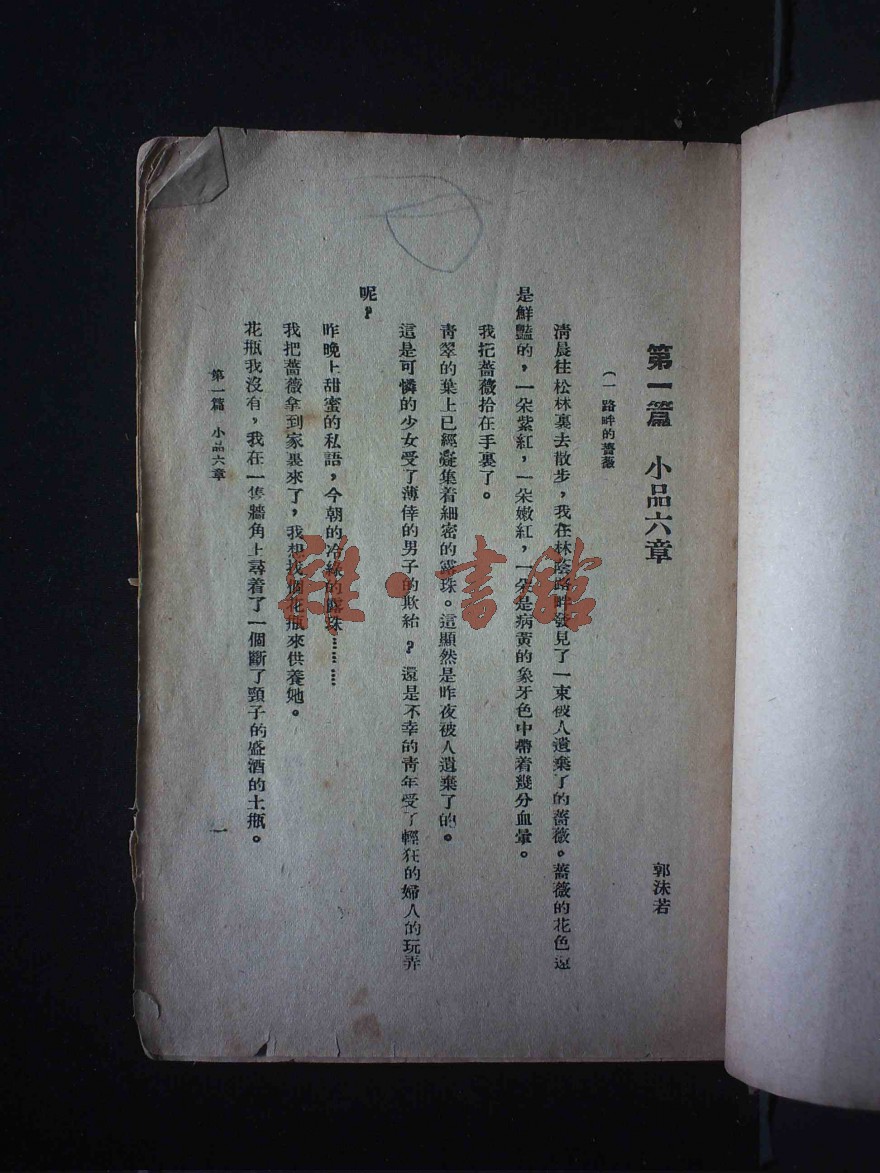 第一篇　小品六章
郭沫若
（一　路畔的薔薇
清晨往松林裏去散步，我在林蔭路畔發見了一束被人遺棄了的薔薇。薔薇的花色還
是鮮豔的，一朵紫紅，一朵嫩紅，一朵是病黃的象牙色中帶着幾分血暈。
我把薔薇拾在手裏了。
青翠的葉上已經凝集着細密的露珠。這顯然是昨夜被人遺棄了的。
這是可憐的少女受了薄倖的男子的欺紿？還是不幸的青年受了輕狂的婦人的玩弄
呢？
昨晚上甜蜜的私語，今朝的冷綠的露珠……
我把薔薇拿到家裏來了，我想找個花瓶來供養她。
花瓶我沒有，我在一隻牆角上尋着了一個斷了頸子的盛酒的土瓶。
第一篇　小品六章
一
雜·書館